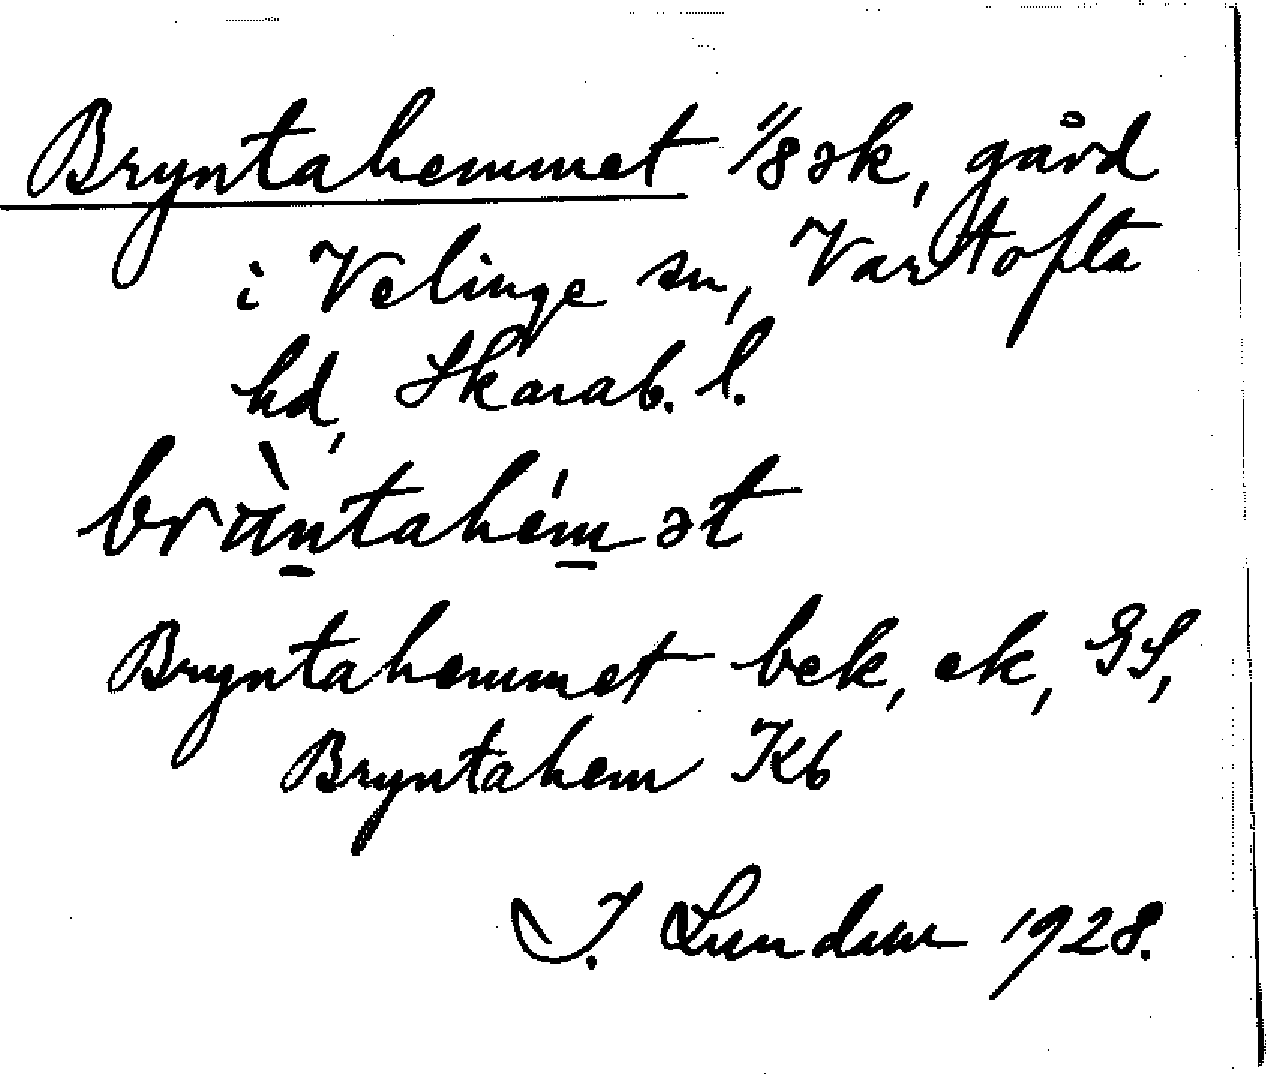 Bryntahemmet 1/8 sk, gård
i Velinge sn, Vartofta
hd, Skarab. l.
bräntahemət
Bryntahemmet bek, ek, GS,
Bryntahem Kb
J. Lundum 1928.